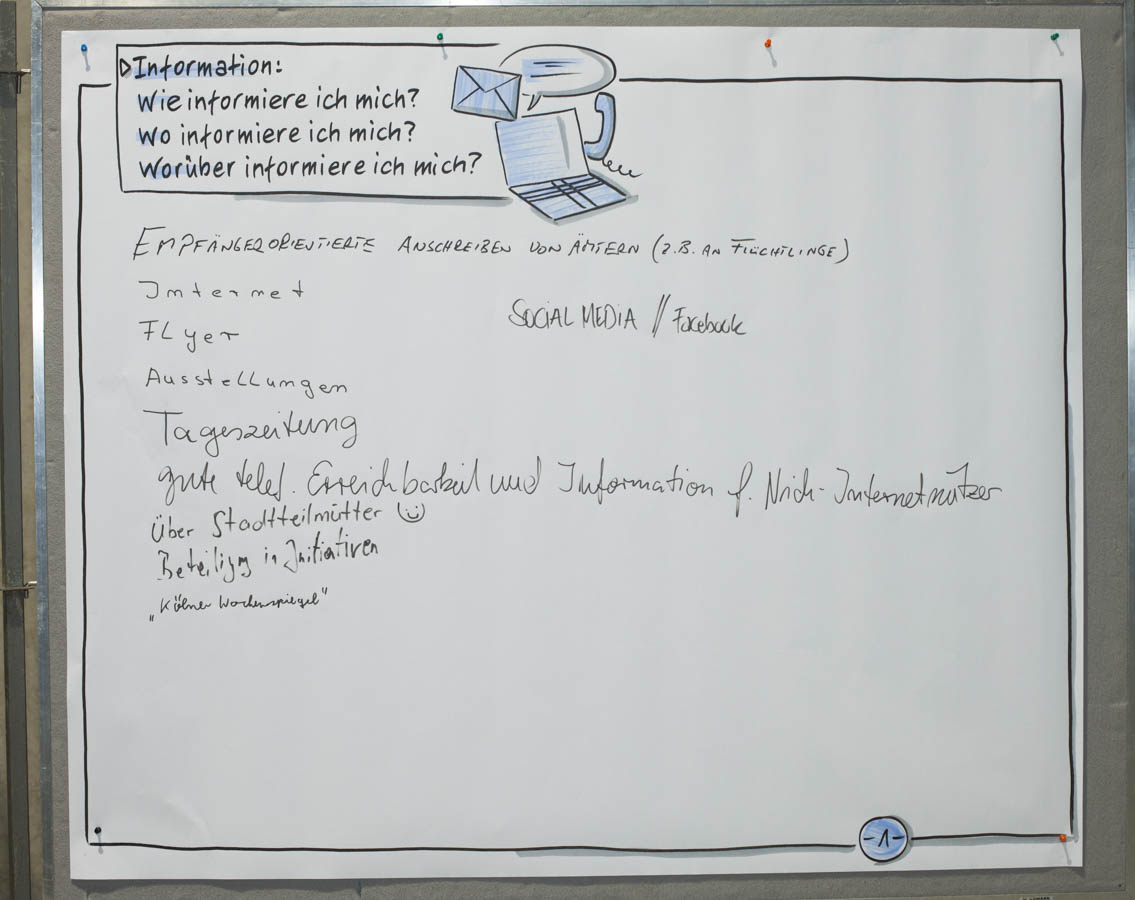 Information:
Wie informiere ich mich?
Wo informiere ich mich?
Worüber informiere ich mich?
EMPFÄNGERORIENTIERTE ANSCHREIBEN VON ÄMTERN (z.B. AN FLÜCHTLINGE)
Internet
SOCIAL MEDIA // Facebook
Flyer
Ausstellungen
Tageszeitung
gute telef. Erreichbarkeit und Information f. Nich-Internetnutzer
Über Stadtteilmütter
Beteiligg in Initiativen
„Kölner Wochenspiegel"
-1-